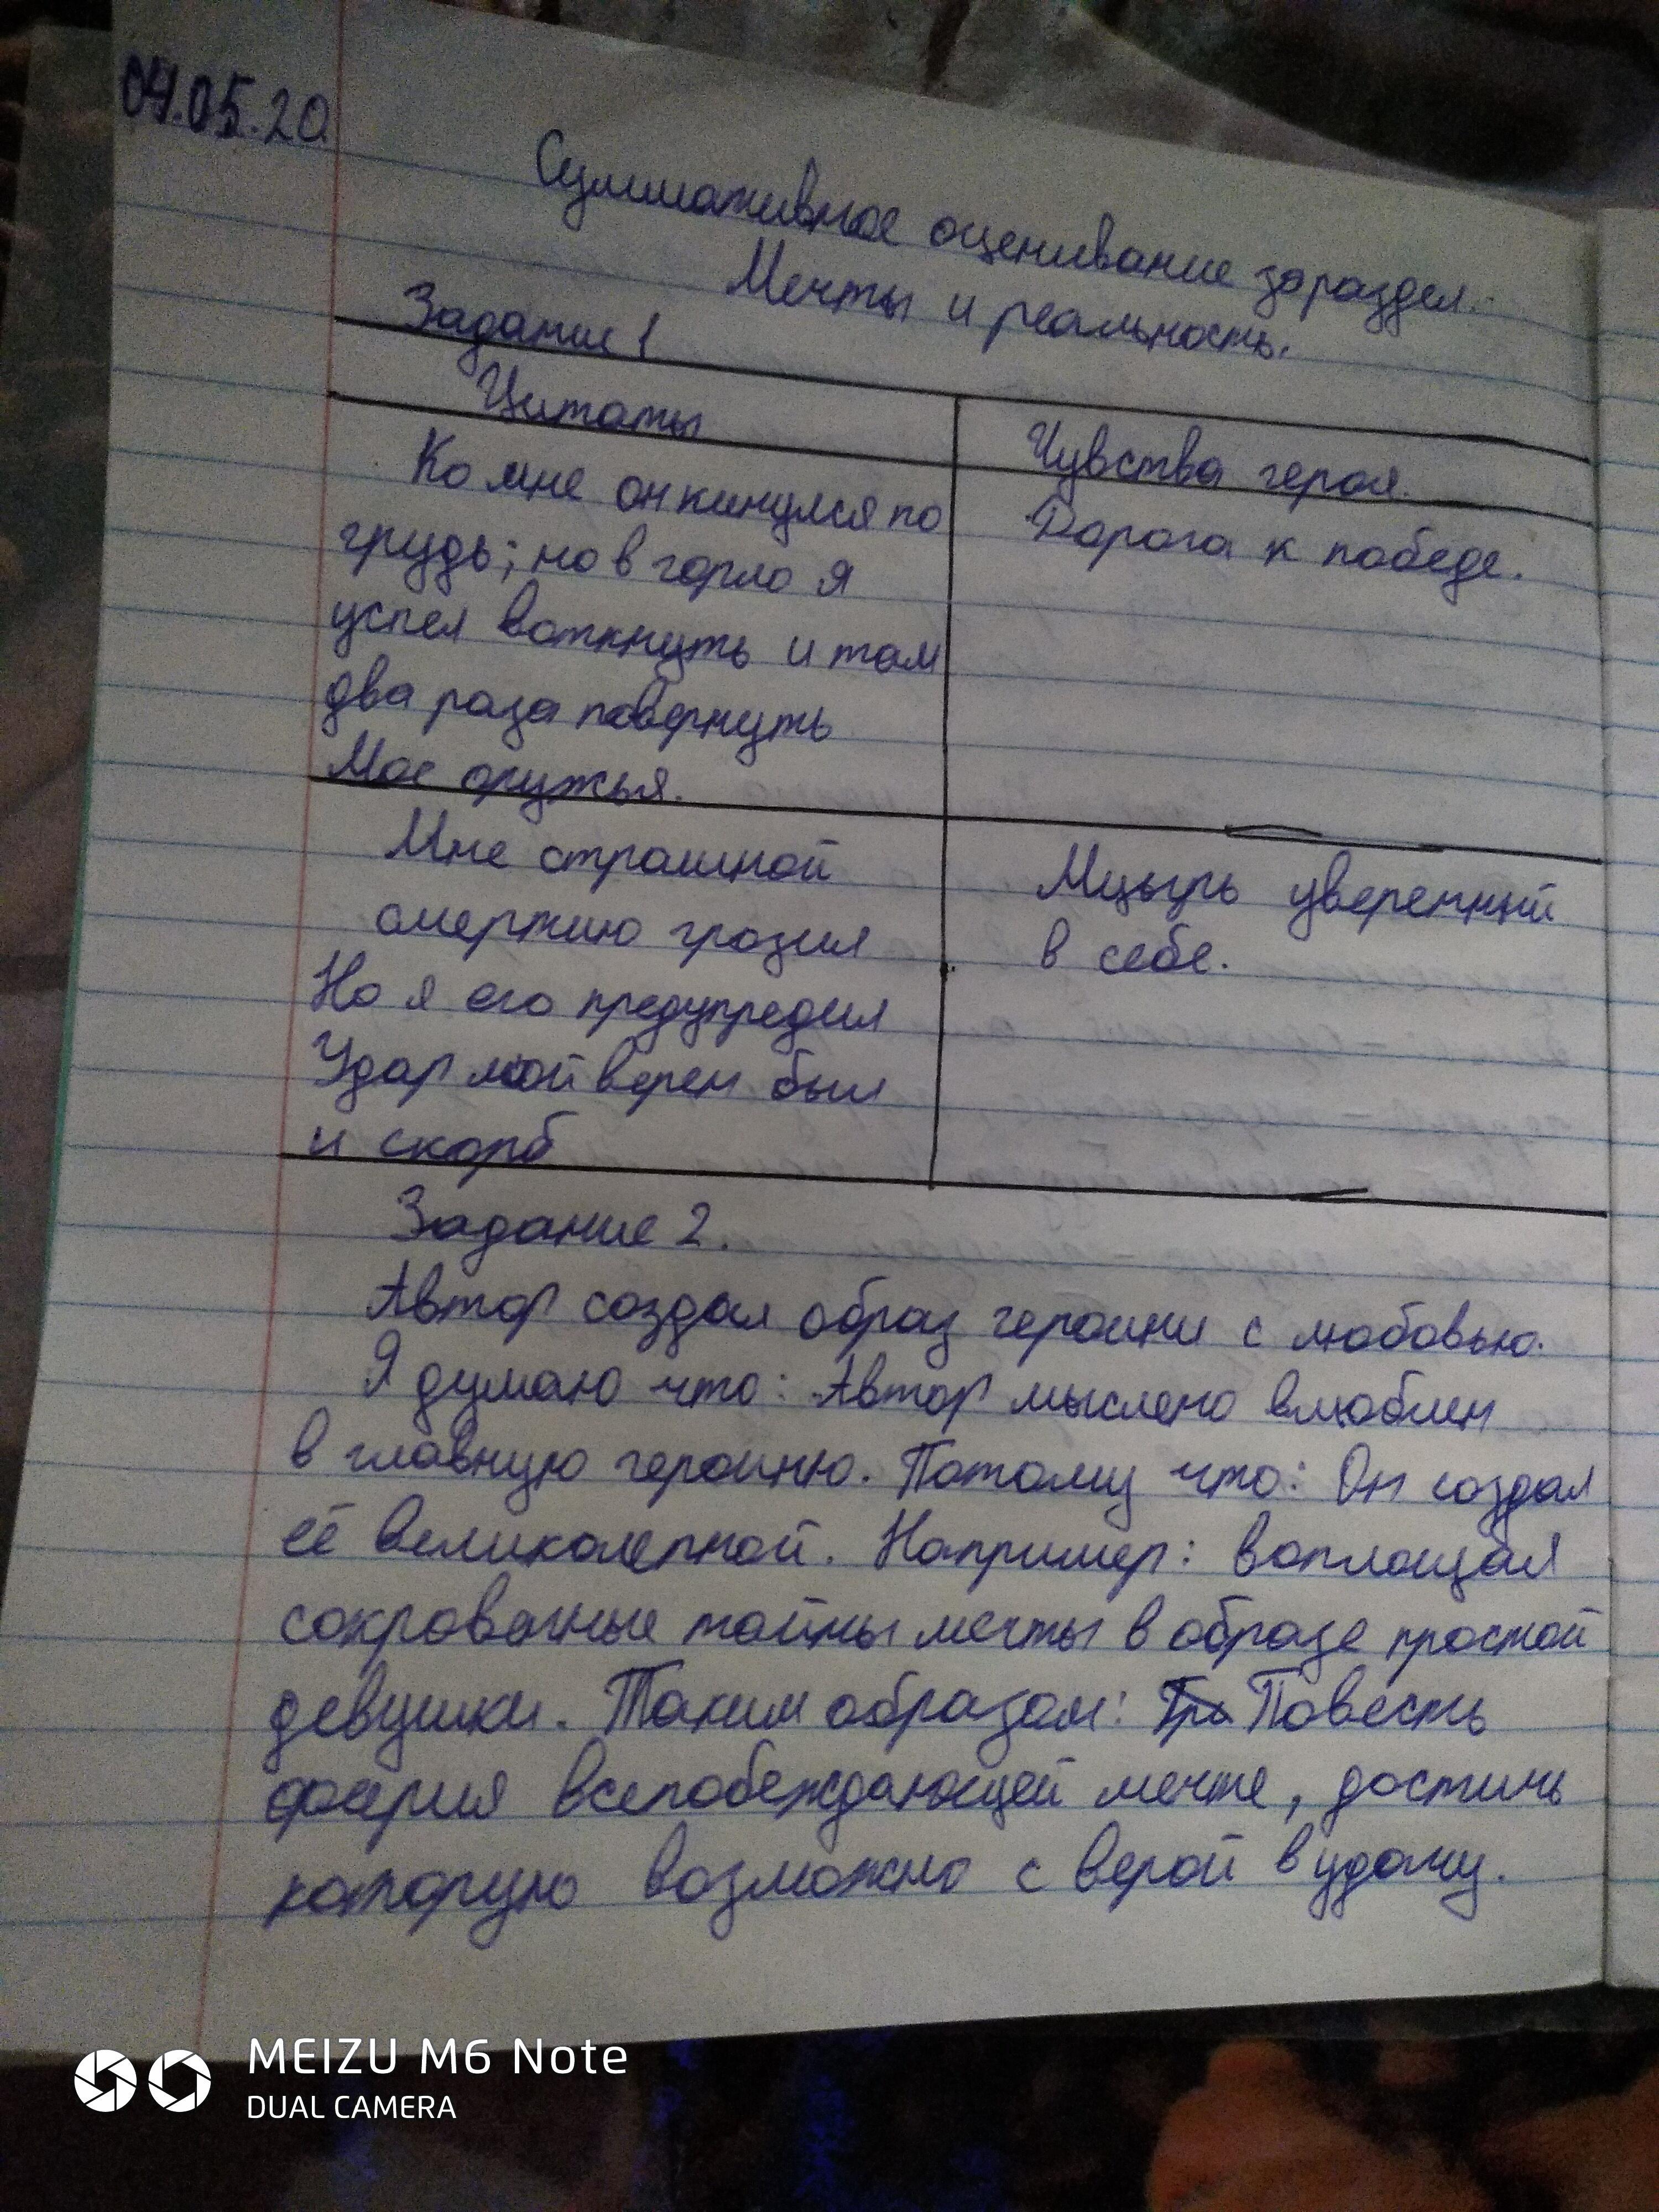 04.05.20
Суммативное оценивание за раздел.
Мечты и реальность.
Задание 1
Цитаты
Чувства героя.
Ко мне он кинулся по
грудь; но в горло я
успел воткнуть и там
два раза повернуть
Мое оружья.
Дорога к победе.
Мне страшной
смертию грозил
Но я его предупредил
Удар мой верен был
и скорб
Мцырь уверенный
в себе.
Задание 2.
Автор создал образ героини с любовью.
Я думаю что: Автор мыслено влюблен
в главную героиню. Потому что: Он создал
её великолепной. Например: воплощая
сокрованые тайны мечты в образе простой
девушки. Таким образом: Повесть
феерия всепобеждающей мечте, достичь
которую возможно с верой в удачу.
MEIZU M6 Note
DUAL CAMERA